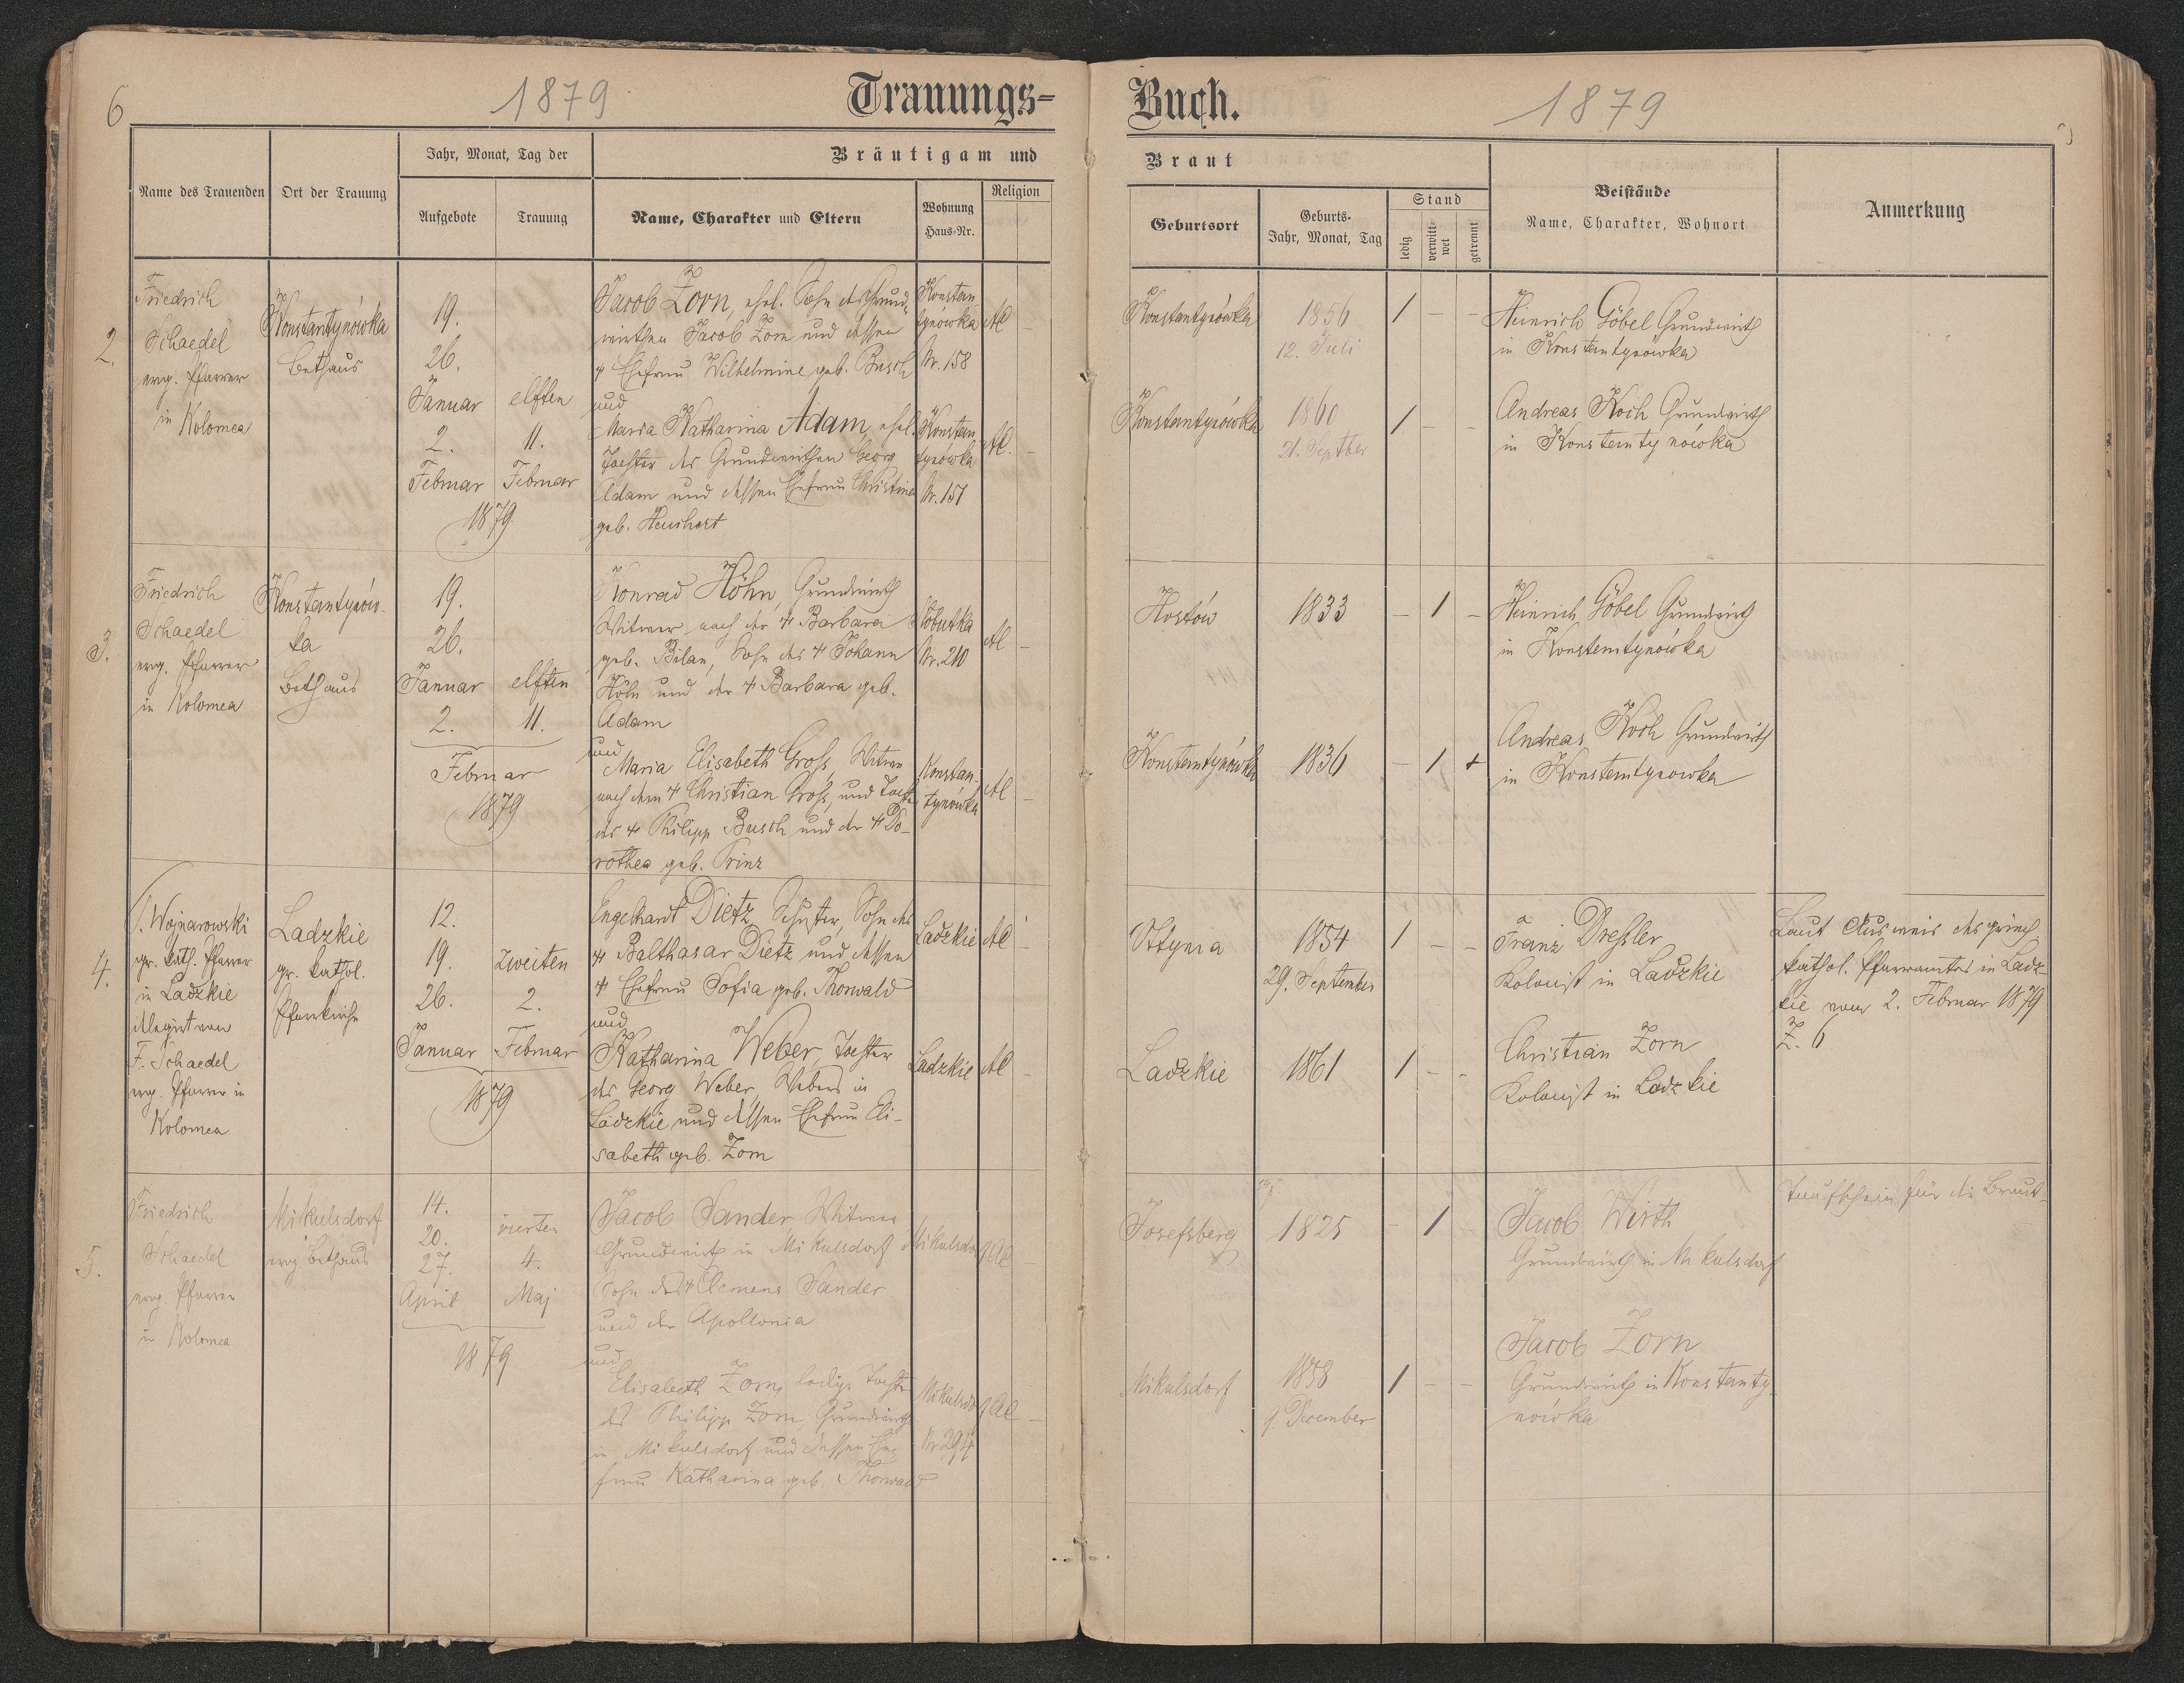 6
1879
Trauungs-
Buch.
1879
Name des Trauenden
Ort der Trauung
Jahr, Monat, Tag der
Aufgebote
Trauung
Bräutigam und
Name, Charakter und Eltern
Wohnung
Haus-Nr.
Religion
Braut
Geburtsort
Geburts-
Jahr, Monat, Tag
Stand
ledig
verwitt-
wet
getrennt
Beistände
Name, Charakter, Wohnort
Anmerkung
2.
Friedrich
Schaedel
evg. Pfarrer
in Kolomea
Konstantynówka
Bethaus
19.
26.
Januar
2.
Februar
elften
11.
Februar
1879
Jacob Zorn, ehel. Sohn des Grund-
wirthen Jacob Zorn und dessen
† Ehefrau Wilhelmine geb. Busch
und
Maria Katharina Adam, ehel.
Tochter des Grundwirthen Georg
Adam und dessen Ehefrau Christine
geb.
Konstan
tynówka
Nr. 158
AC
Konstan
tynówka
Nr. 157
AC.
Konstantynówka
1856
12. Juli
1 - -
Konstantynówka
1860
21. Septber
1 - -
Heinrich Göbel Grundwirth
in Konstantynówka
Andreas Koch Grundwirth
in Konstantynówka
3.
Friedrich
Schaedel
evg. Pfarrer
in Kolomea
Konstantynów-
ka
Bethaus
19.
26.
Januar
2.
elften
11.
Februar
1879
Konrad Höhn, Grundwirth
Witwer nach der † Barbara
geb. Bilan, Sohn des † Johann
Höhn und der † Barbara geb.
Adam
und
Maria Elisabeth Groß, Witwe
nach dem † Christian Groß, und Tocht.
des † Philipp Busch und der † Do-
rothea geb. Prinz
Slobutka
Nr. 210
AC
Konstan-
tynówka
AC
Hostów
1833
- 1 -
Konstantynówka
1836
- 1 +
Heinrich Göbel Grundwirth
in Konstantynówka
Andreas Koch Grundwirth
in Konstantynowka
4.
Wojnarowski
gr. kath. Pfarrer
in Ladzkie
delegirt von
F. Schaedel
evg. Pfarrer in
Kolomea
Ladzkie
gr. kathol.
Pfarrkirche
12.
19.
26.
Januar
zweiten
2.
Februar
1879
Engelhardt Dietz, Sohn des
† Balthasar Dietz und dessen
† Ehefrau Sofia geb. Thorwald
und
Katharina Weber, Tochter
des Georg Weber, Webers in
Ladzkie und dessen Ehefrau Eli-
sabeth geb. Zorn
Ladzkie
AC
Ladzkie
AC
Ottynia
1854
29. September
1 - -
Ladzkie
1861
1 - -
Franz Dreßler
Kolonist in Ladzkie
Christian Zorn
Kolonist in Ladzkie
Laut Ausweis des griech
kathol. Pfarramtes in Ladz-
kie vom 2. Februar 1879
Z. 6
5.
Friedrich
Schaedel
evg. Pfarrer
in Kolomea
Mikulsdorf
evg Bethaus
14.
20.
27.
April
vierten
4.
Maj
1879
Jacob Sander, Witwer
Grundwirth in Mikulsdorf
Sohn des † Clemens Sander
und der Apollonia
und
Elisabeth Zorn, ledige Tochter
des Philipp Zorn Grundwirth
in Mikulsdorf und dessen Ehe
frau Katharina geb. Thorwald
Mikulsdorf
AC
Mikulsdorf
Nr 294
AC
Josefsberg
1825
- 1 -
Mikulsdorf
1858
9. December
1 - -
Jacob Wirth
Grundwirth in Mikulsdorf
Jacob Zorn
Grundwirth in Konstanty
nówka
Taufschein für die Braut.